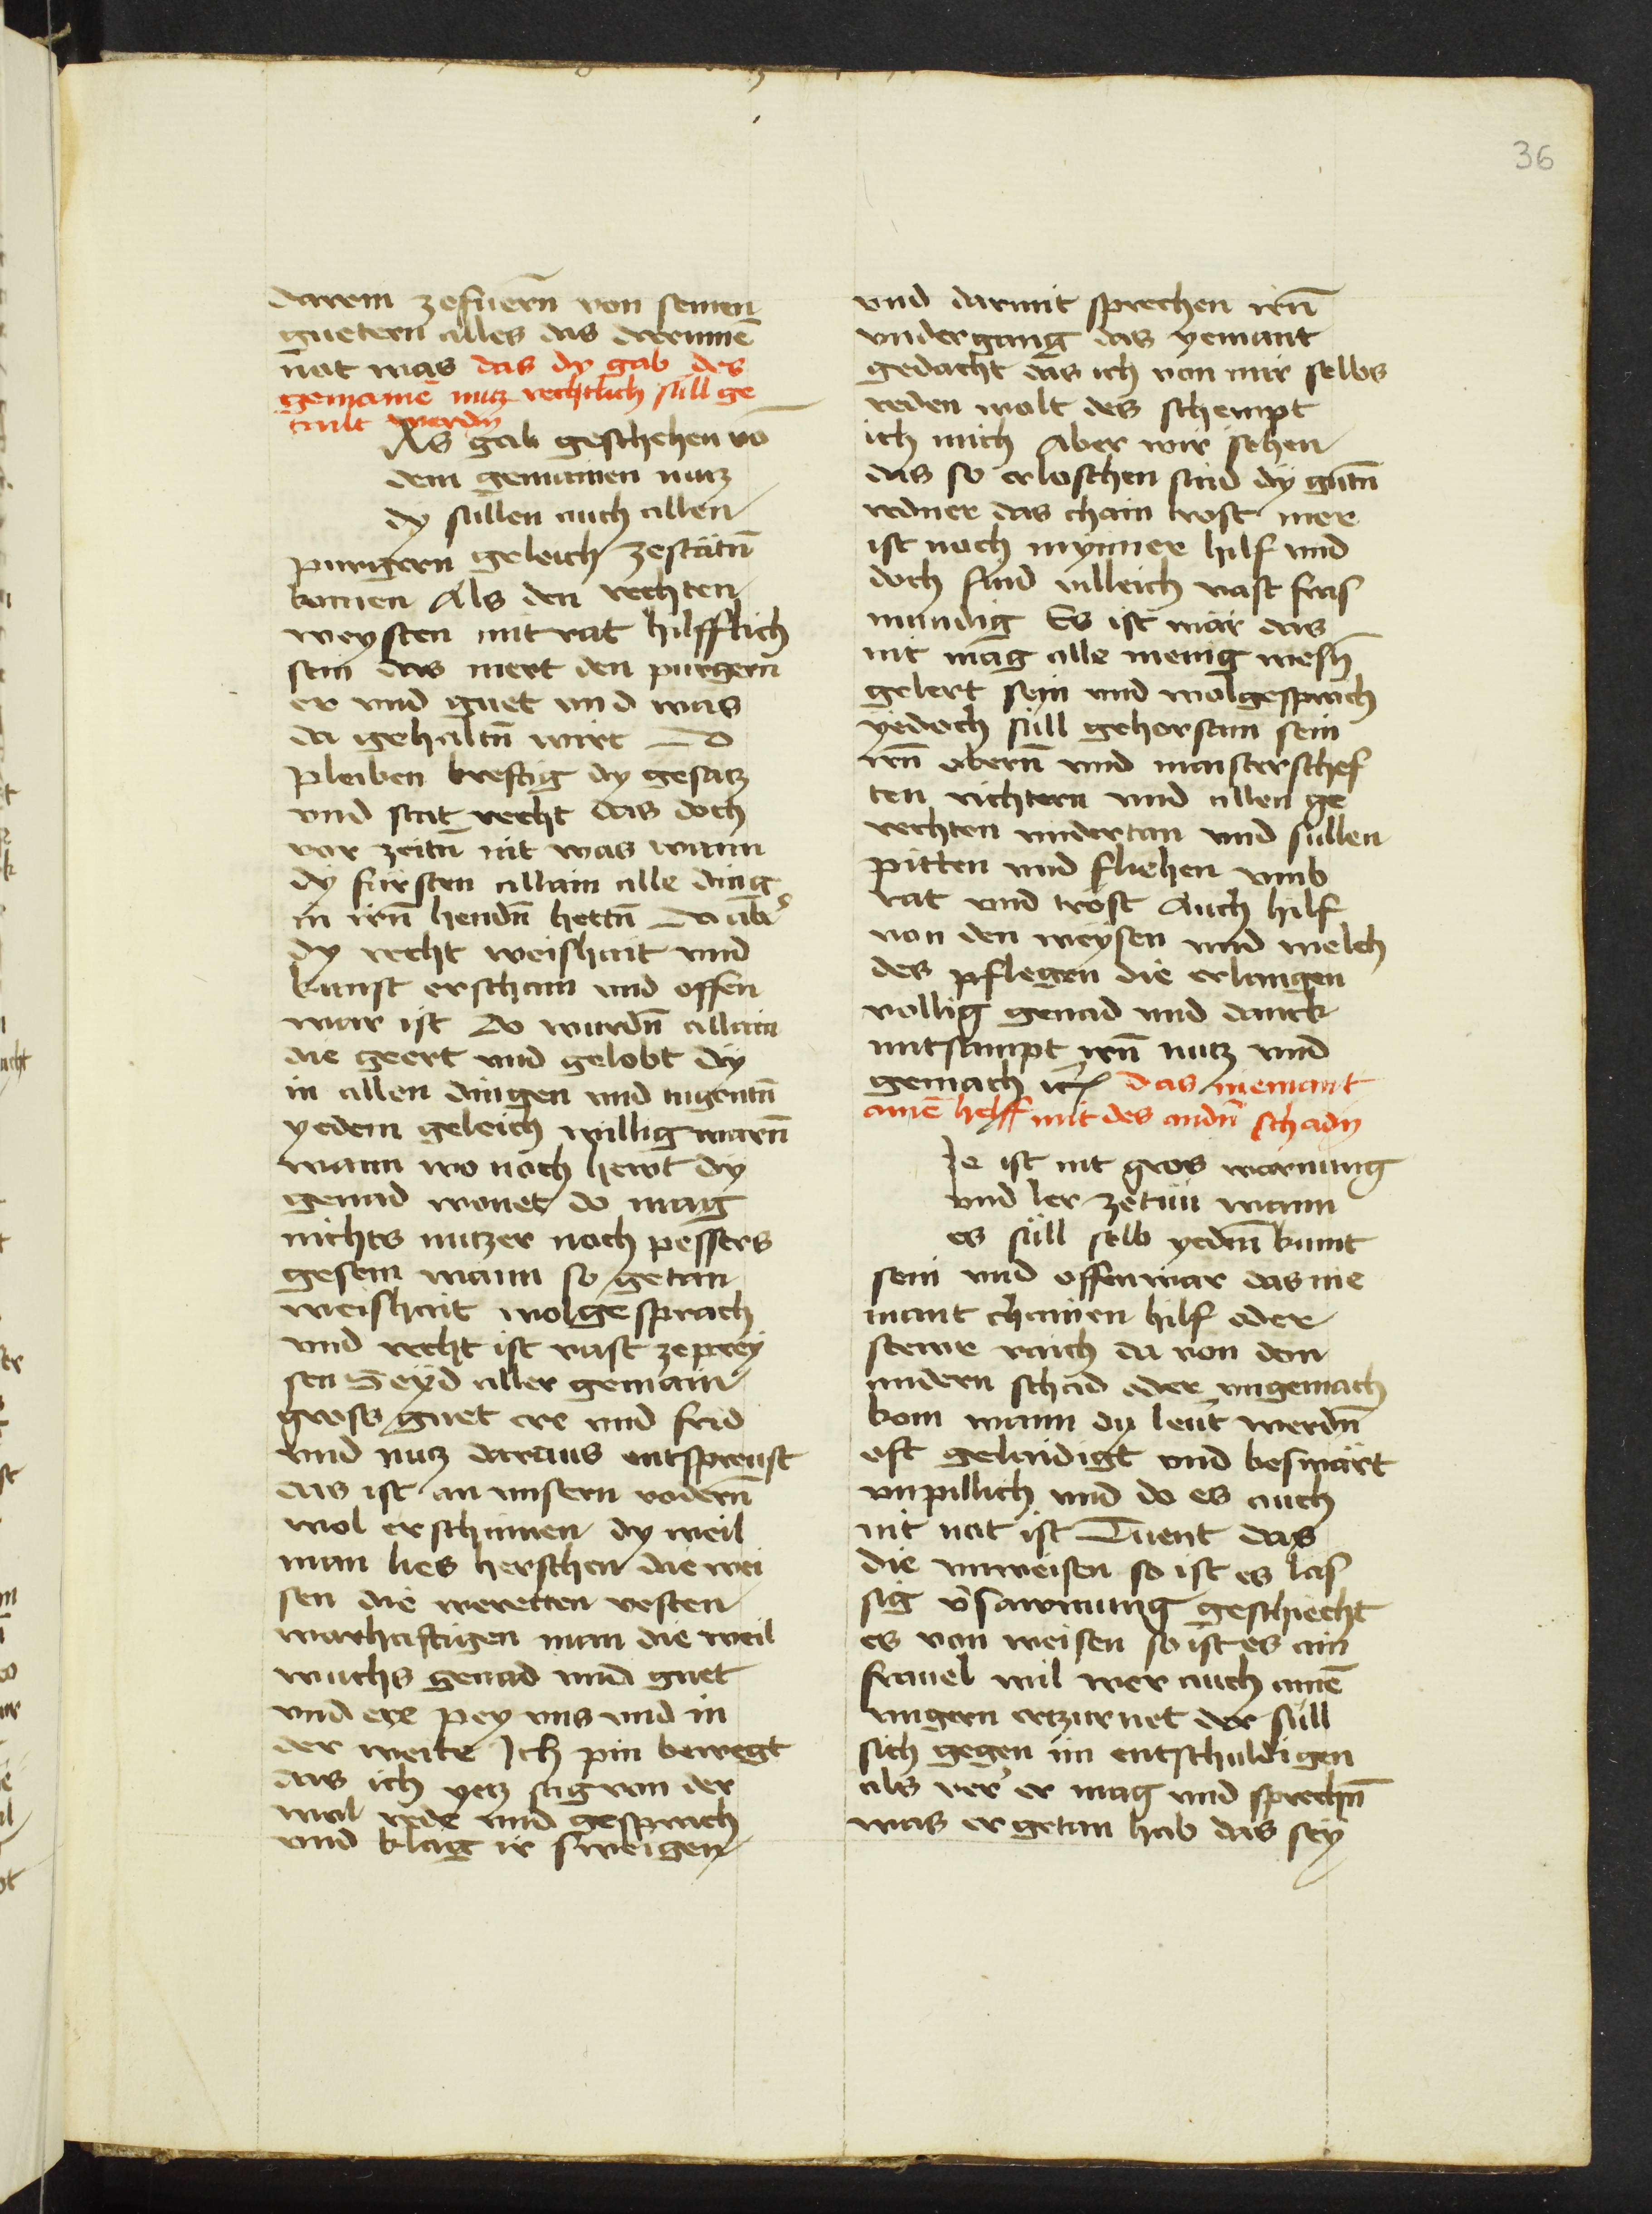 36
darein zefuern̄ von seinen
guetern alles das darinnē
nat was das dy gab des
gemainē nutz rechtlich sull ge
tailt werdn̄
As gab geschehen vō
dem gemainen nutz
dy sullen auch allen
purgern geleich zestātn̄
komen Als den rechten
weysten mit rat hilfflich
sein das mert den purgern
er vnd guet vnd was
da gehaltn̄ wirt do
pleiben kreftig dy gesatz
vnd stat recht das doch
vor zeitn̄ nit was wann
dy fürsten allain alle ding
in irn̄ hendn̄ hettn̄ do abr̄
dy recht weishait vnd
kunst erschain vnd offen
war ist do wurdn̄ allain
die geert vnd gelobt dy
in allen dingen vnd tugentn̄
yedem geleich willig warn̄
wann wo noch hewt dy
genad wonet do mag
nichts nutzer noch pessers
gesein wann so getan
weishait wolgesprach
vnd recht ist vast ze prey
sen Seyd aller gemain
gross guet ere vnd frid
vnd nutz daraus entspreust
das ist an vnsern vodern̄
wol erschinnen dy weil
man lies herschen die wei
sen die weretten vesten
warhaftigen man die weil
wuchs genad vnd guet
vnd ere pey vns vnd in
der weite Ich pin bewegt
das ich yetz sag von der
wol rede vnd gesprach
vnd klag ir sweigen
vnd darmit sprechen irn̄
vndergang das yemant
gedacht das ich von mir selbs
reden wolt des schempt
ich mich Aber wir sehen
das so erloschen sind dy gutn̄
redner das chain trost mer
ist noch mynner hilf vnd
doch sind villeich vast fras
mundig Es ist war das
nit mag alle menig wesn̄
gelert sein vnd wolgesprach
yedoch sull gehorsam sein
irn̄ obern̄ vnd maisterschef
ten richtern vnd allen ge
rechten vndertan vnd sullen
pitten vnd fliehen vmb
rat vnd trost Auch hilf
von den weysen vnd welch
des pflegen die erlangen
vollig genad vnd danck
mitsampt irn̄ nutz vnd
gemach ꝛc das niemant
ainē helff mit des andn̄ schadn̄
Je ist nit gros warnung
vnd ler zetun wann
es sull selb yedm̄ kunt
sein vnd offenwar das nie
mant chainen hilf oder
stewr raich da von den
andern schad oder vngemach
kom wann dy leut werdn̄
oft gelaidigt vnd beswärt
vnpillich vnd do es auch
nit nat ist Tuent das
die vnweisen so ist es las
sig v̄sawmung geschiecht
es von weisen so ist es ain
frauel wil wer auch ainē
vngern erzurnet der sull
sich gegen im entschuldigen
als ver er mag vnd sprechn̄
was er getan hab das sey